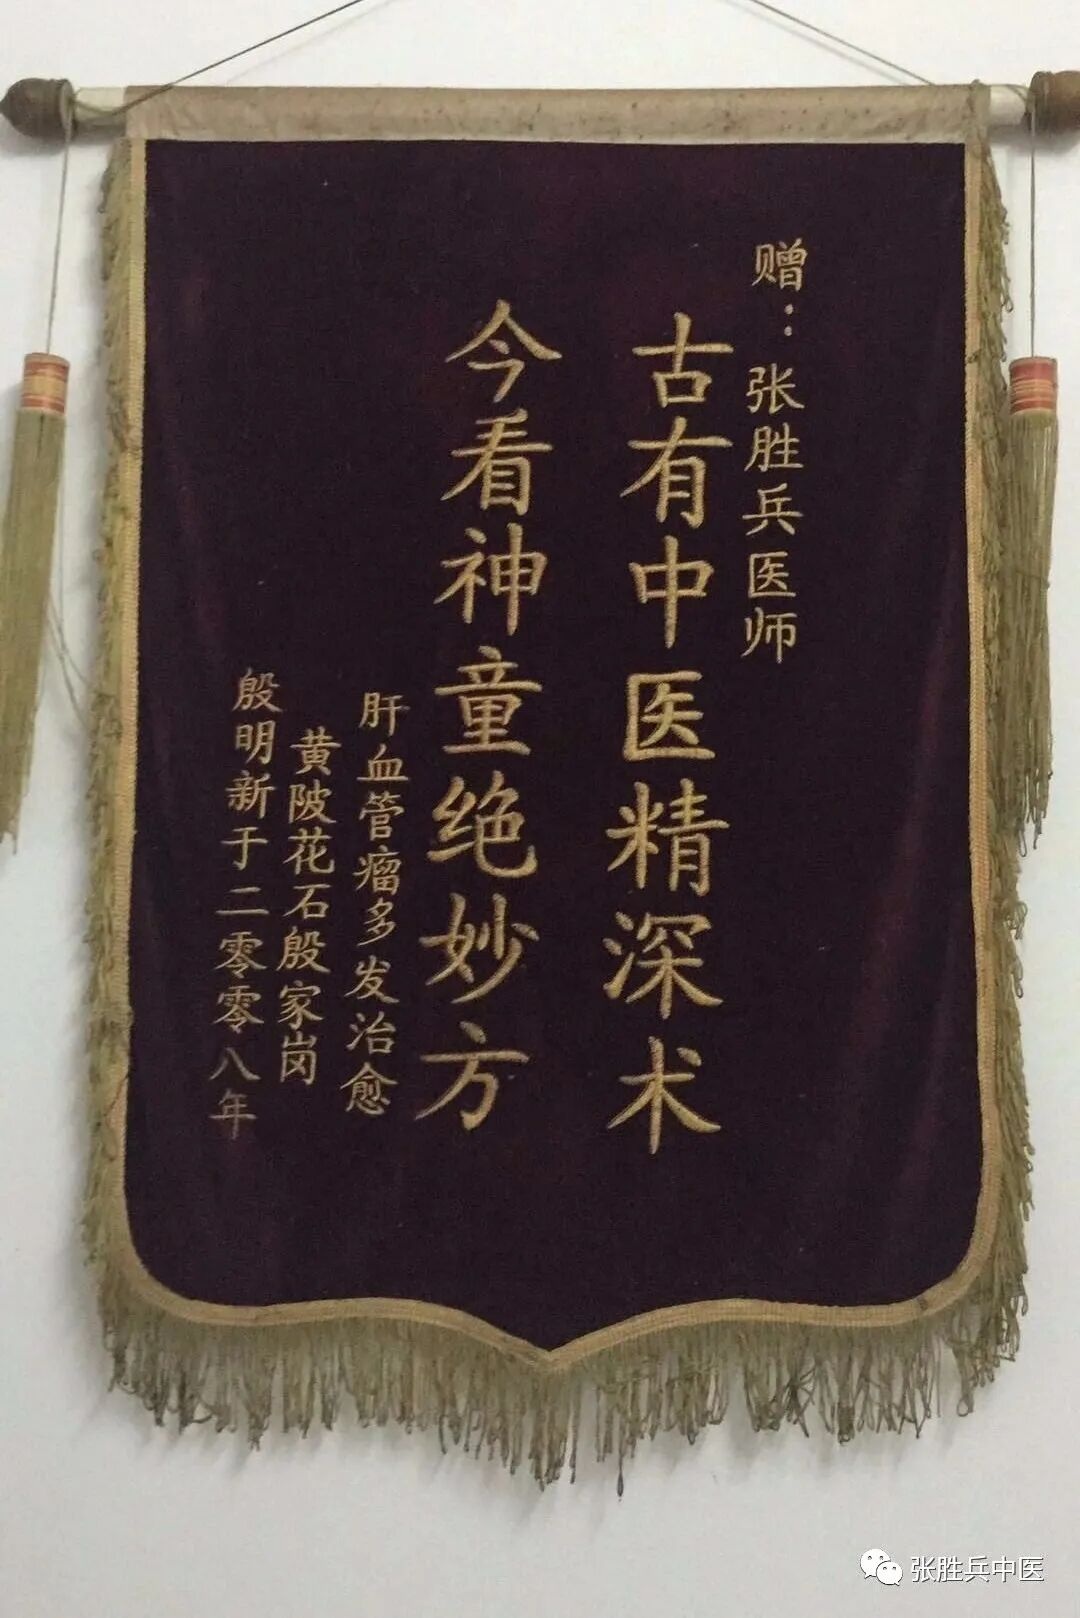 赠：张胜兵医师
古有中医精深术
今看神童绝妙方
肝血管瘤多发治愈
黄陂花石殷家岗
殷明新于二零零八年
张胜兵中医